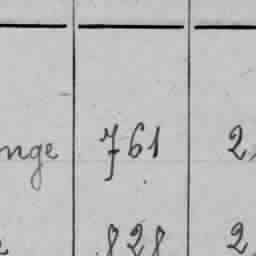 nge 761 2
828 2